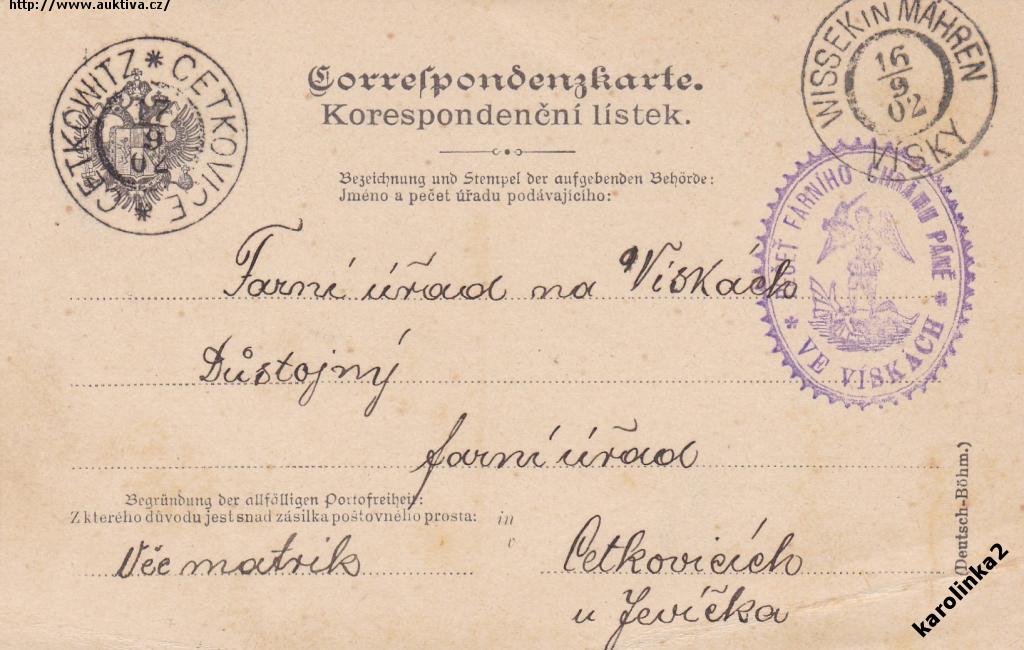 http://www.auktiva.cz/
CETKOWITZ * CETKOVICE *
17
9
02
WISSEK IN MÄHREN
VÍSKY
16
9
02
Correspondenzkarte.
Korespondenční lístek.
Bezeichnung und Stempel der aufgebenden Behörde:
Jméno a pečet úřadu podávajícího:
PEČEŤ FARNÍHO CHRÁMU PÁNĚ
* VE VÍSKÁCH *
Farní úřad na Vískách
Důstojný
farní úřad
Begründung der allfälligen Portofreiheit:
Z kterého důvodu jest snad zásilka poštovného prosta:
in
v
Věc matrik
Cetkovicích
u Jevíčka
(Deutsch-Böhm.)
karolinka2